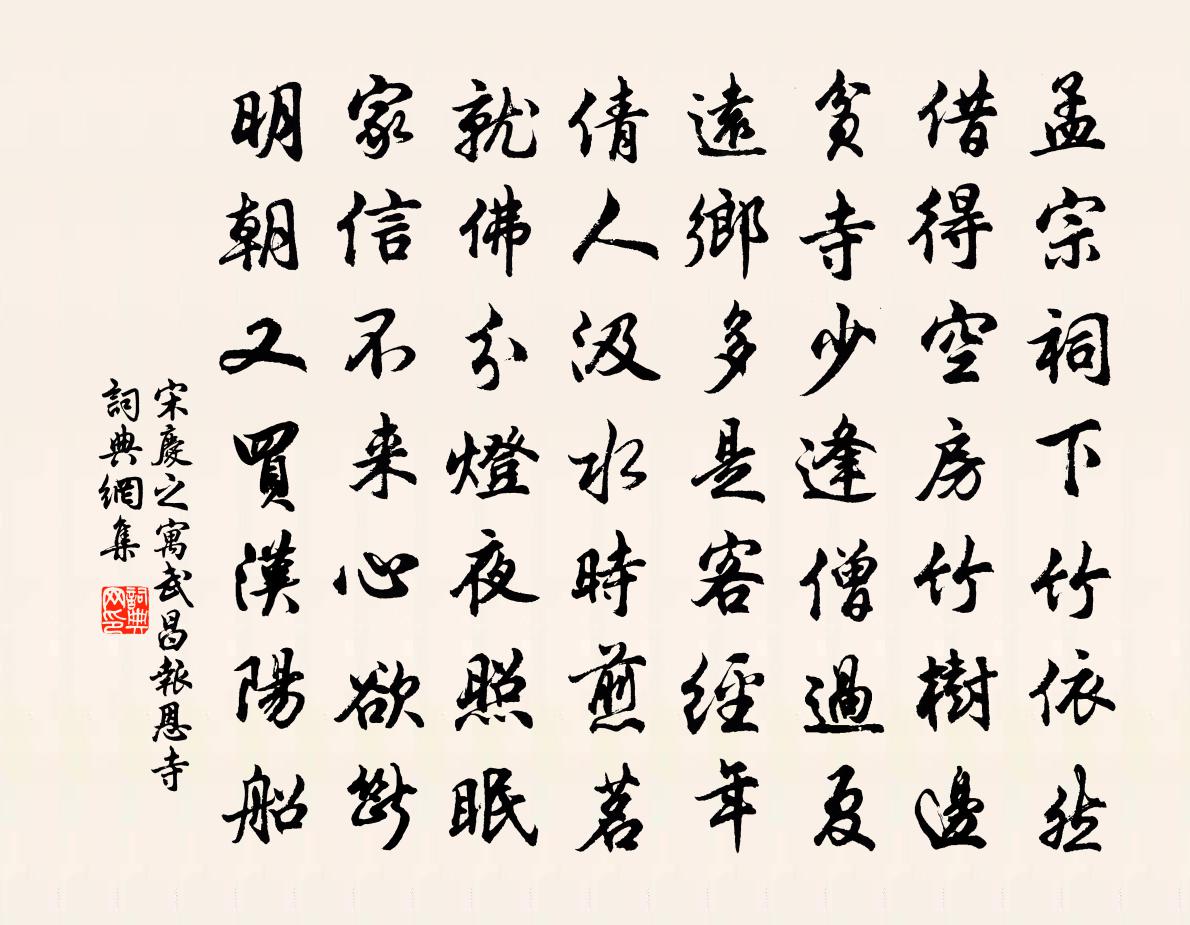 孟宗祠下竹依然
借得空房竹樹邊
貧寺少逢僧過夏
遠鄉多是客經年
倩人汲水時煎茗
就佛分燈夜照眠
家信不来心欲斷
明朝又買漢陽船
宋慶之寓武昌報恩寺
詞典網集
詞典网印